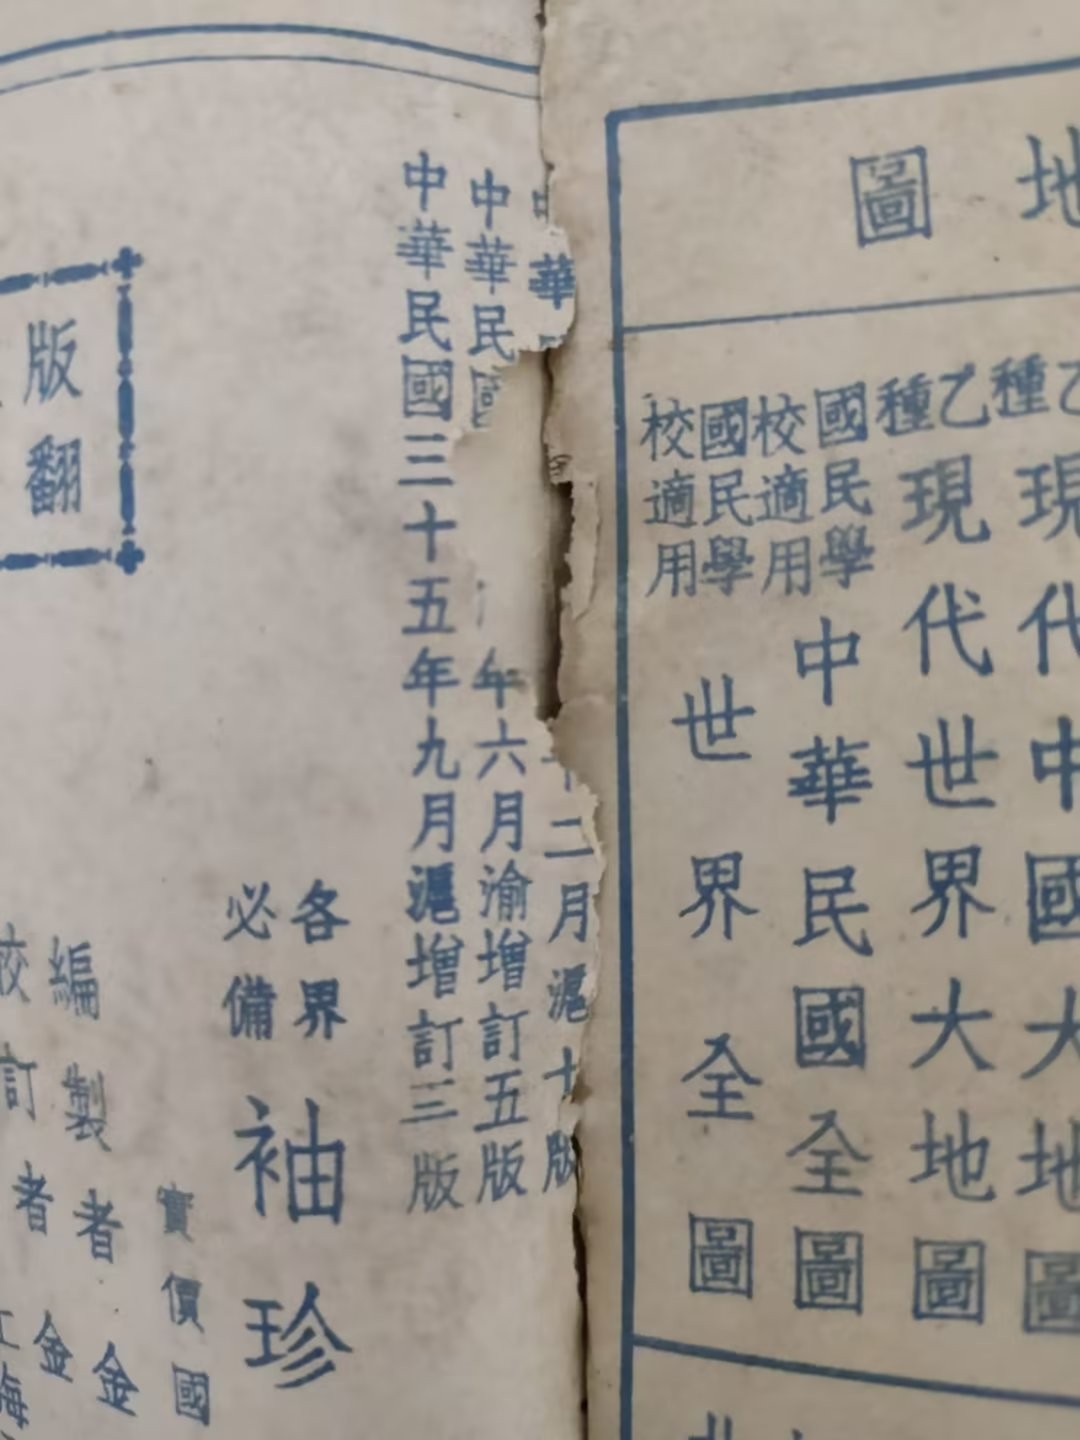 地圖
乙現代中國大地圖
種
乙種現代世界大地圖
國民學校適用中華民國全圖
國民學校適用世界全圖
北
華
十二月滬十版
中華民國
年六月渝增訂五版
中華民國三十五年九月滬增訂三版
各界必備袖珍
實價國
編製者金
校訂者金
上海
版翻